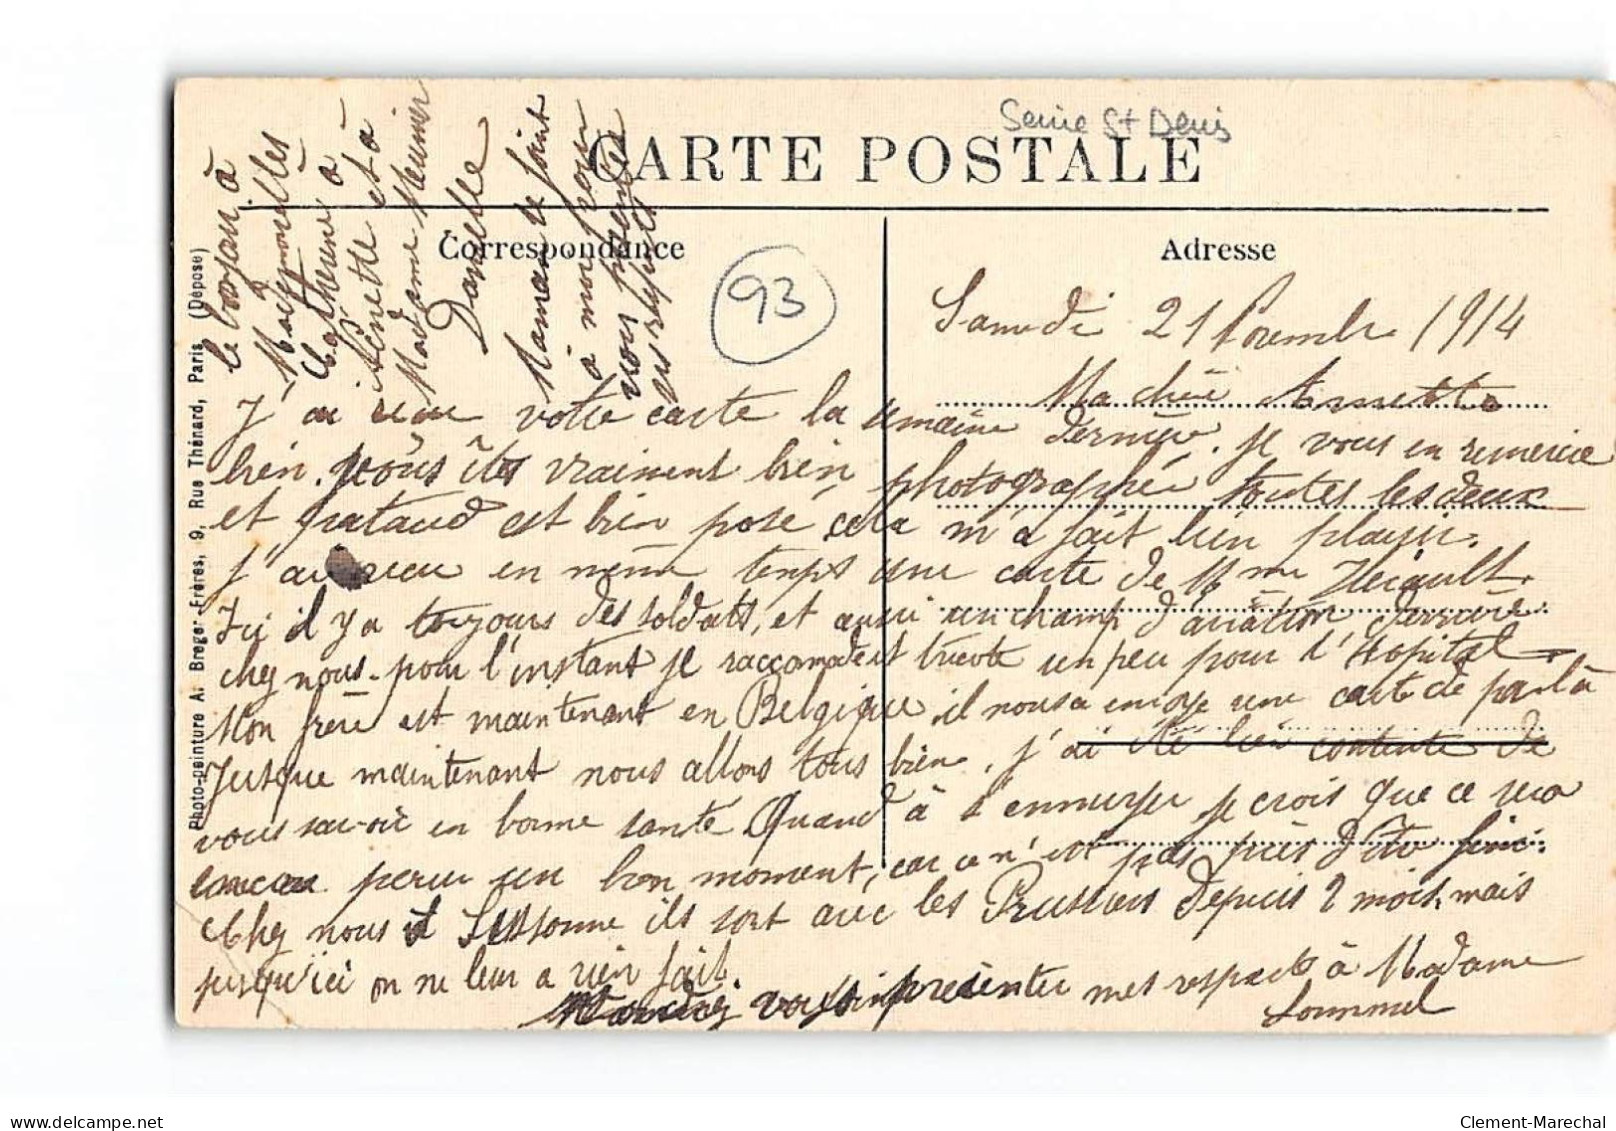 Seine St Denis
CARTE POSTALE
Correspondance
Adresse
93
Photo-peinture A. Breger Frères, 9, Rue Thénard, Paris (Déposé)
Samedi 21 Novembre 1914
Ma chère Annette
J'ai reçu votre carte la semaine dernière. je vous en remercie
bien. vous êtes vraiment bien photographié toutes les deux
et est bien posé, cela m'a fait bien plaisir.
J'ai reçu en même temps une carte de Mme Hérault.
Ici il y a toujours des soldats, et aussi un champ d'aviation derrière
chez nous. pour l'instant je raccomode et tricote un peu pour l'Hopital.
Mon frère est maintenant en Belgique, il nous a envoyé une carte de par là
Jusque maintenant nous allons tous bien. J'ai été bien contente de
vous savoir en bonne santé Quand à s'ennuyer je crois que ce sera
encore pour un bon moment, car ce n'est pas près d'être fini.
Chez nous à Sissonne ils sont avec les Prussiens depuis 2 mois. mais
jusqu'ici on ne leur a rien fait.
présenter mes respects à Madame
Lommel
le bonjour à
Mesdemoiselles
Catherine à
Ninette et à
Madame Meunier
Danielle
Maman se joint
à moi pour
vous présenter
ses respects
Clement-Marechal
delcampe.net